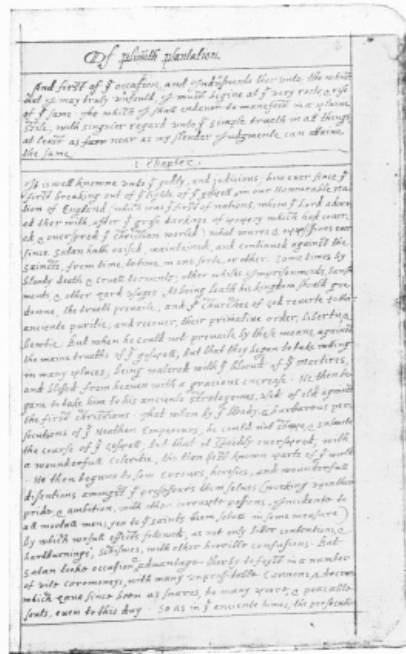 Of plimoth plantation.
And first of yᵉ occasion, and Indusments ther unto; the which
that I may truly unfould, I must begine at yᵉ very roote & rise
of yᵉ same. The which I shall endevor to manefest in a plaine
stile; with singuler regard unto yᵉ simple trueth in all things,
at least as far near as my slender Judgmente can attaine
the same.
1. Chapter.
It is well knowne unto yᵉ godly, and judicious; how ever since yᵉ
first breaking out of yᵉ light of yᵉ gospell, in our Honourable na-
tion of England (which was yᵉ first of nations, whom yᵉ Lord adorn-
ed ther with, after yᵉ grosse darknes of popery which had cover-
ed, & overspred yᵉ christian world) what warrs, & oppissions ever
since Satan hath raised, maintained, and continued against the
saincts, from time, to time, in one sorte, or other. Some times by
bloody death & cruell torments; other whiles Imprisonments, banish-
ments, & other hard usages. As being loath his kingdom should goe
downe, the trueth prevaile; and yᵉ churches of god reverte to their
anciente puritie; and recover, their primative order, libertie, &
bewtie. But when he could not prevaile by these means, against
the maine trueths of yᵉ gospell; but that they began to take rooting
in many places; being watered with yᵉ bloud of yᵉ martires,
and blessed from heaven with a gracious encrease. He then be-
gane to take him to his anciente strategemes, used of old against
the first christians. That when by yᵉ bloody, & barbarous per-
secutions of yᵉ Heathen Emperours, he could not stoppe, & subverte
the course of yᵉ gospell; but that it speedily overspred, with
a wounderfull celeritie, the then best known parts of yᵉ world.
He then begane to sow errours, heresies, and wounderfull
disentions amongst yᵉ proffessours them selves (working upon their
pride, & ambition, with other corrupte passions, Incidente to
all mortall men; yea to yᵉ saints them selves in some measure)
by which wofull effects followed; as not only bitter contentions, &
hartburnings, schismes, with other horrible confusions. But
Satan tooke occasion & advantage therby to foyst in a number
of vile ceremoneys, with many unprofitable Cannons, & decrees
which have since been as snares, to many poore, & peaceable
souls, even to this day. So as in yᵉ anciente times, the persecutions